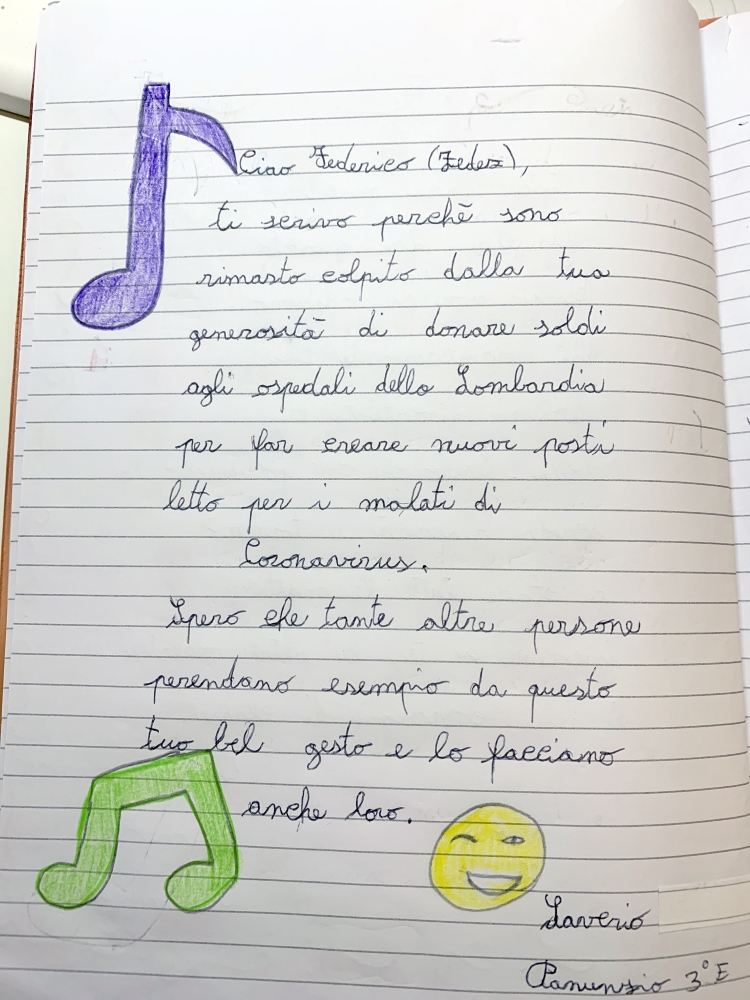 Ciao Federico (Fedez),
ti scrivo perchè sono
rimasto colpito dalla tua
generosità di donare soldi
agli ospedali della Lombardia
per far creare nuovi posti
letto per i malati di
Coronavirus.
Spero che tante altre persone
perendano esempio da questo
tuo bel gesto e lo facciano
anche loro.
Saverio
Panunzio 3°E